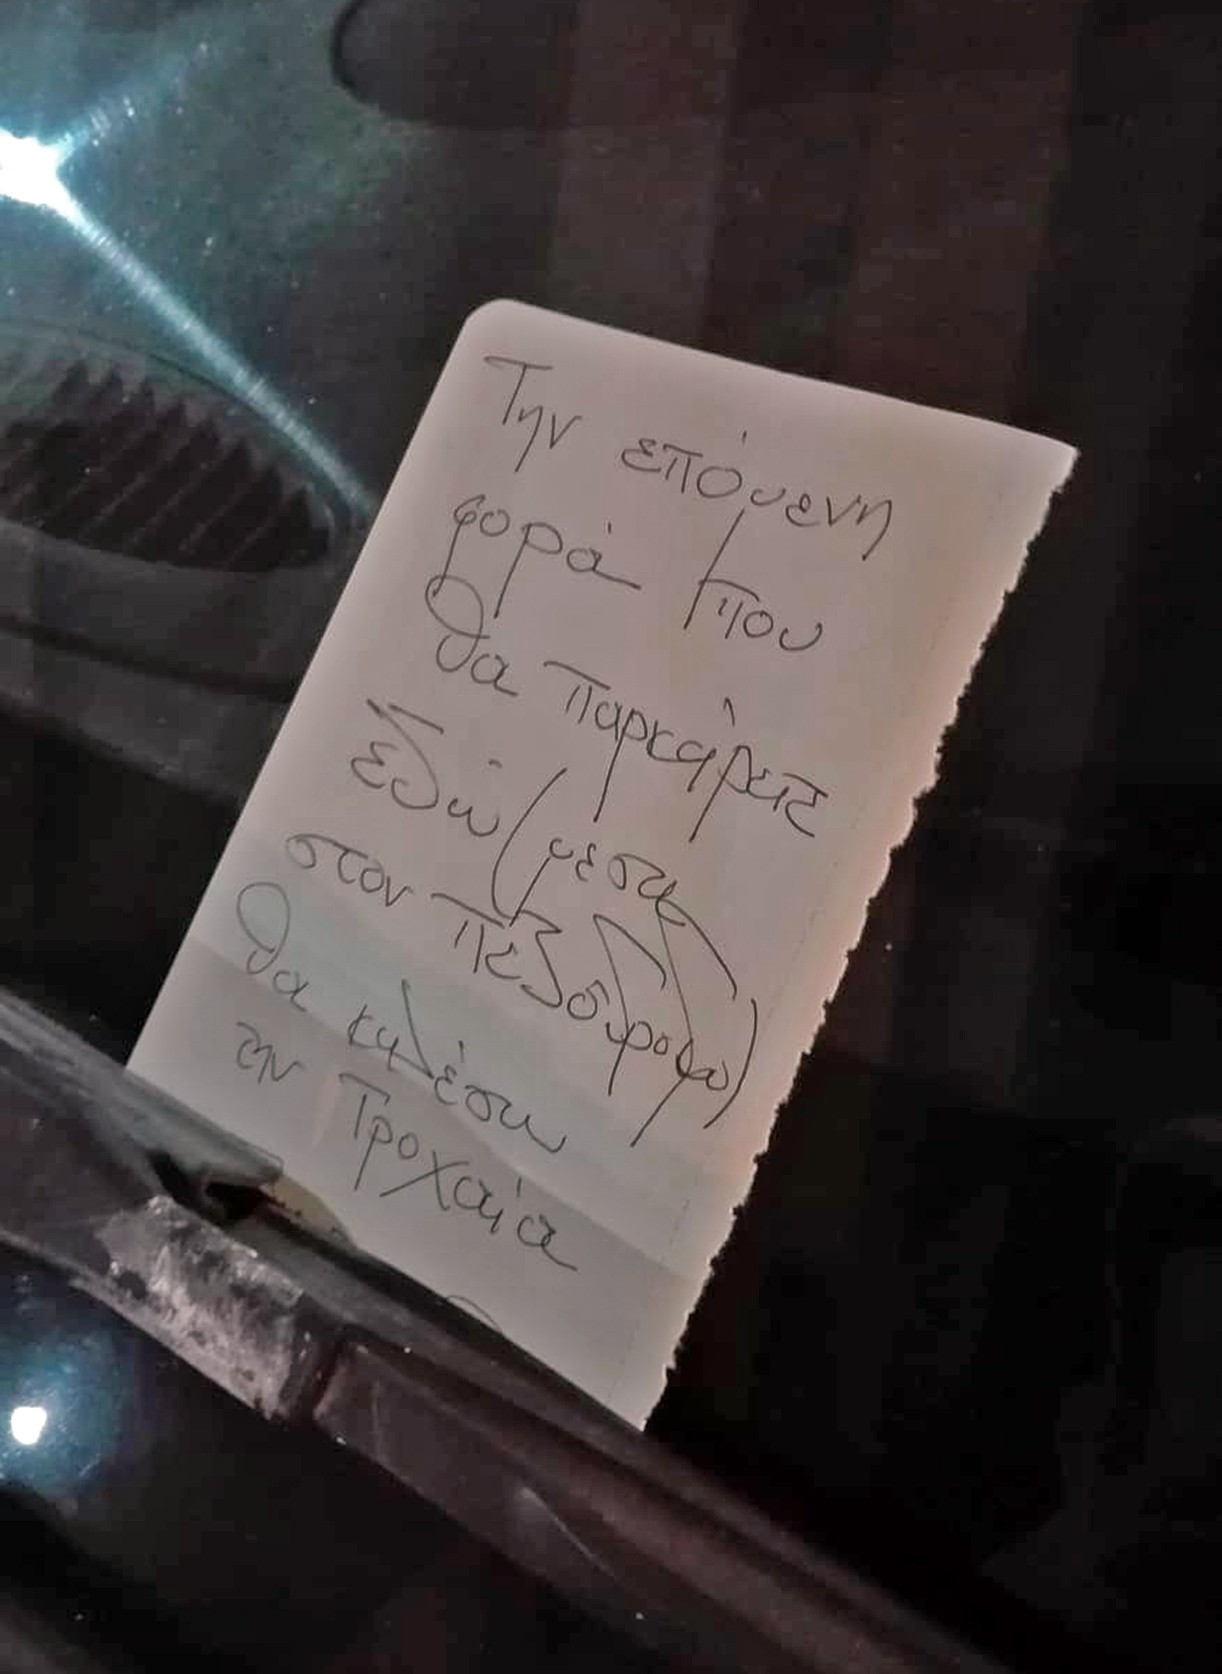 Την επόμενη
φορά που
θα παρκάρετε
εδώ (μεσα
στον πεζόδρομο)
θα καλέσω
την Τροχαία